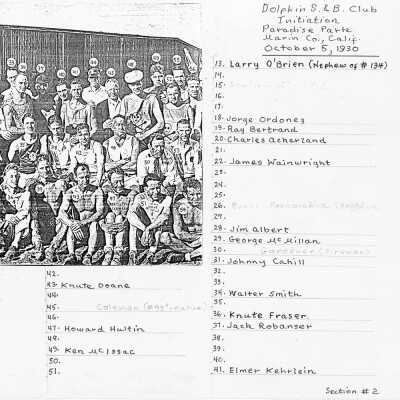 Dolphin S. & B. Club
Initiation
Paradise Park
Marin Co., Calif.
October 5, 1930
13. Larry O'Brien (Nephew of # 134)
14.
15.
17.
18. Jorge Ordones
19. Ray Bertrand
20. Charles Acherland
21.
22. James Wainwright
23.
24.
25.
26.
27.
28. Jim Albert
29. George McMillan
30. Gardener (Fireman)
31. Johnny Cahill
32.
33.
34. Walter Smith
35.
36. Knute Fraser
37. Jack Robanser
38.
39.
40.
41. Elmer Kehrlein
42.
43. Knute Doane
44.
45. Coleman
46.
47. Howard Hultin
48.
49. Ken McIssac
50.
51.
Section # 2